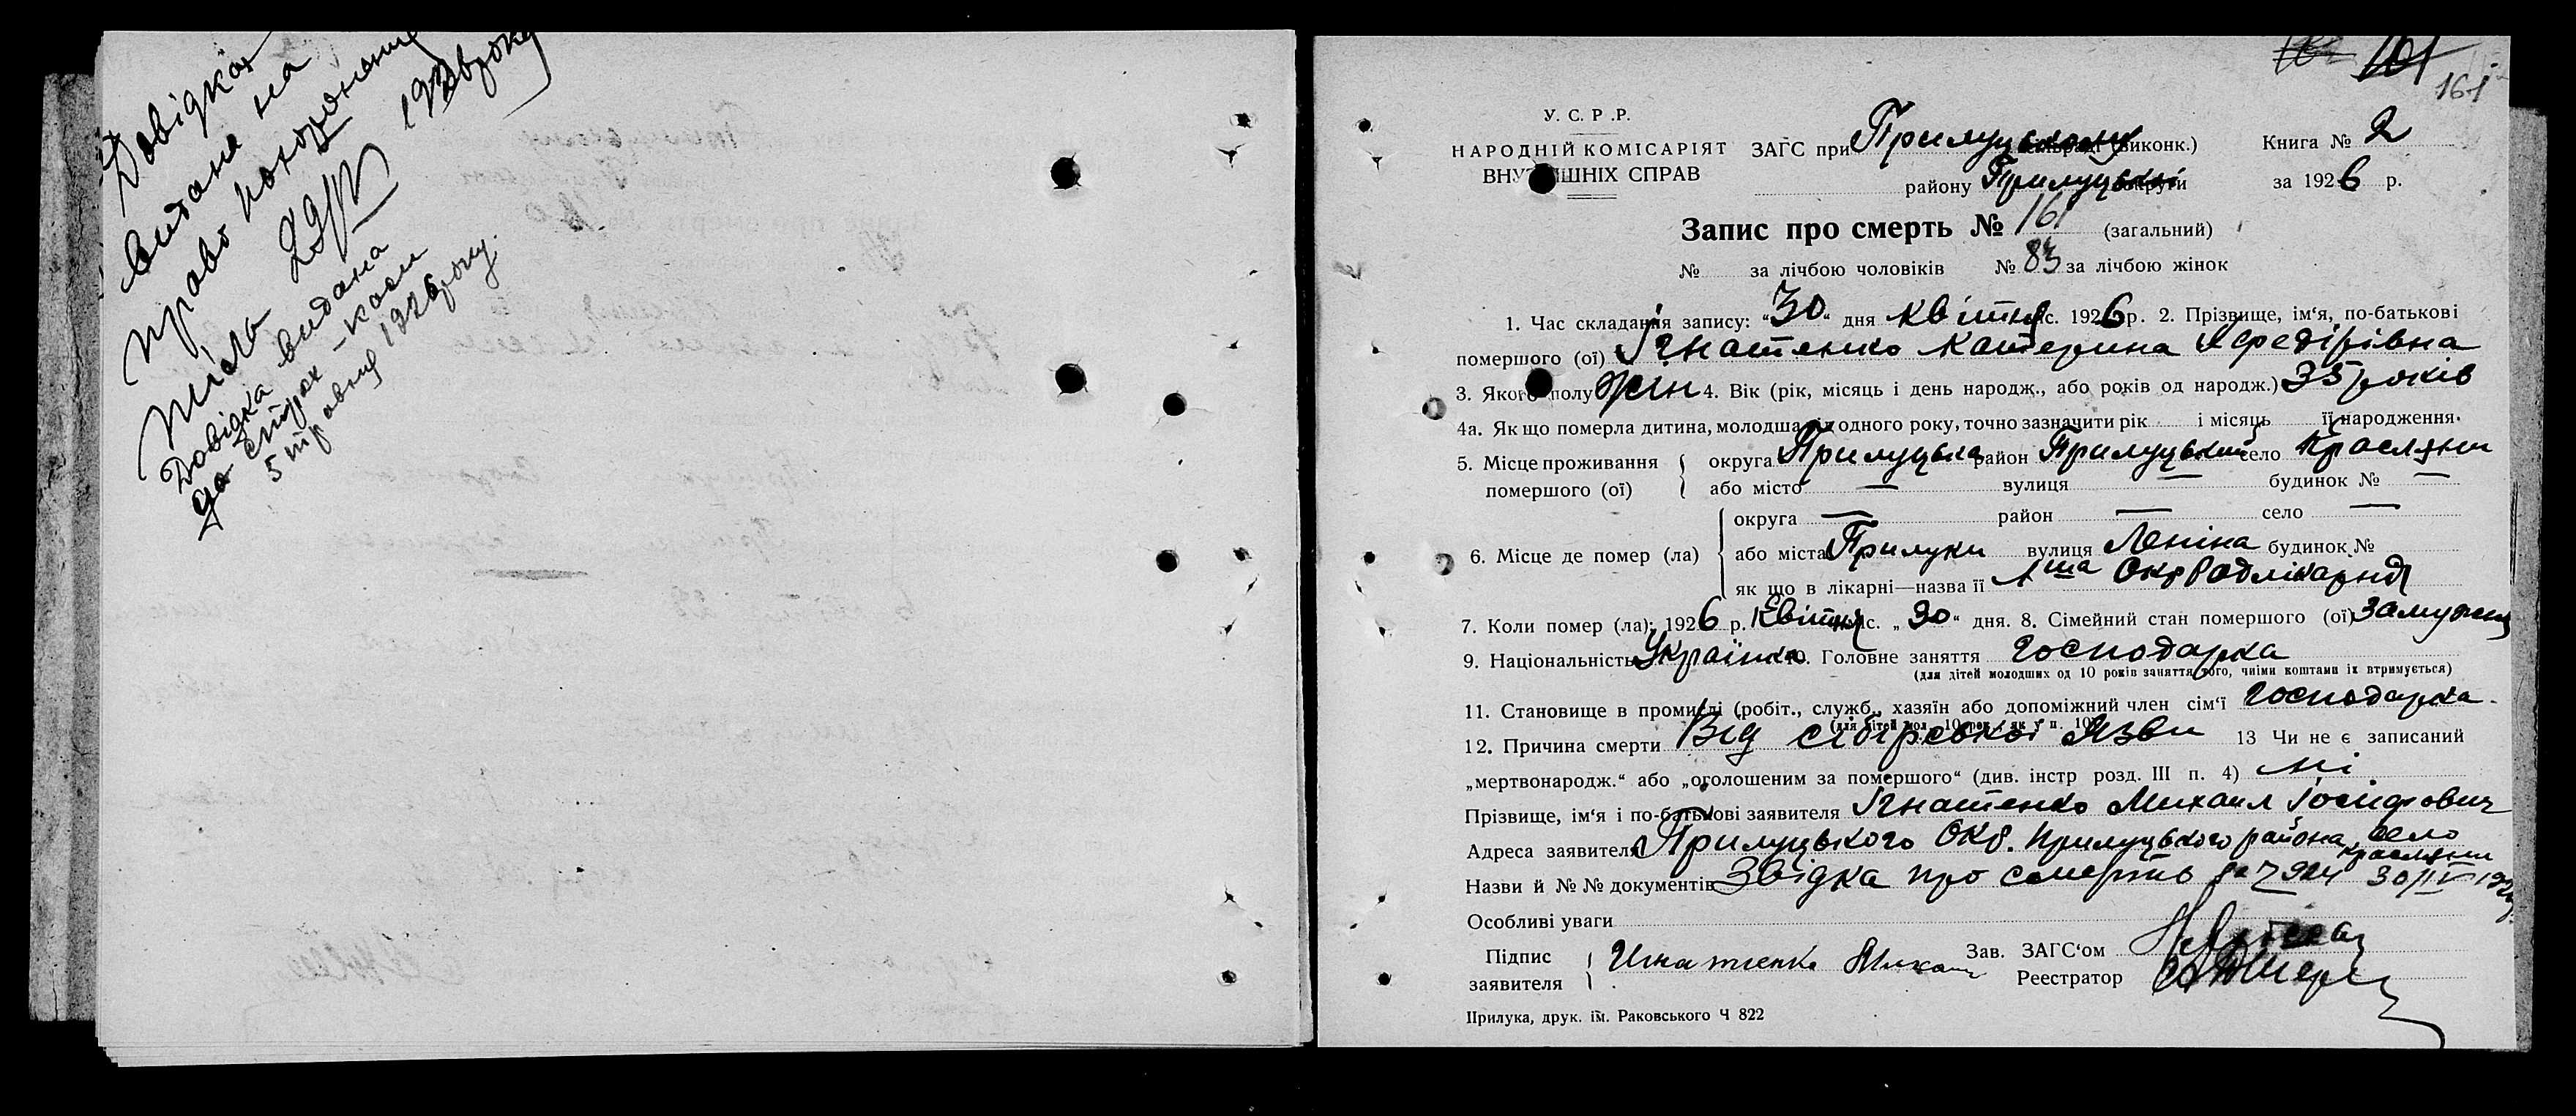 Довідка
видана на
право поховання
тіла 29/IV 1926 року
Довідка видана
до страх-каси
5 травня 1926 року.
161
161
У. С. Р. Р.
НАРОДНІЙ КОМІСАРІЯТ
ВНУТРІШНІХ СПРАВ
ЗАГС при Прилуцькому виконк.)
району Прилуцької округи
Книга № 2
за 1926 р.
Запис про смерть № 161 (загальний)
№ за лічбою чоловіків № 83 за лічбою жінок
1. Час складання запису: „30“ дня квітня с. 1926 р. 2. Прізвище, ім‘я, по-батькові
помершого (ої) Ігнатенко Катерина
3. Якого полу жін 4. Вік (рік, місяць і день народж., або років од народж.) 35 років
4а. Як що померла дитина, молодша одного року, точно зазначити рік і місяць її народження.
5. Місце проживання помершого (ої) округа Прилуцька район Прилуцький село Красляни
або місто — вулиця — будинок № —
6. Місце де помер (ла) округа — район — село —
або міста Прилуки вулиця Леніна будинок №
як що в лікарні—назва її 1ша Окррадлікарня
7. Коли помер (ла): 1926 р. Квітня с. „30“ дня. 8. Сімейний стан помершого (ої) Замужня
9. Національність Українка 10. Головне заняття господарка
(для дітей молодших од 10 років заняття того, чиїми коштами їх втримується)
11. Становище в промислі (робіт., служб., хазяїн або допоміжний член сім‘ї господарка.
(для дітей мол. 10 рок. як у п. 10)
12. Причина смерти Від сібірської Язви 13 Чи не є записаний
„мертвонародж.“ або „оголошеним за помершого“ (див. інстр розд. III п. 4) ні
Прізвище, ім‘я і по-батькові заявителя Ігнатенко Михаил Іосифович
Адреса заявителя Прилуцького Окр. Прилуцького району, село
Красляни
Назви й №№ документів Звідка про смерть 30/IV 192
Особливі уваги
Підпис заявителя Игнатенко Михаил
Зав. ЗАГС‘ом
Реестратор
Прилука, друк. ім. Раковського Ч 822